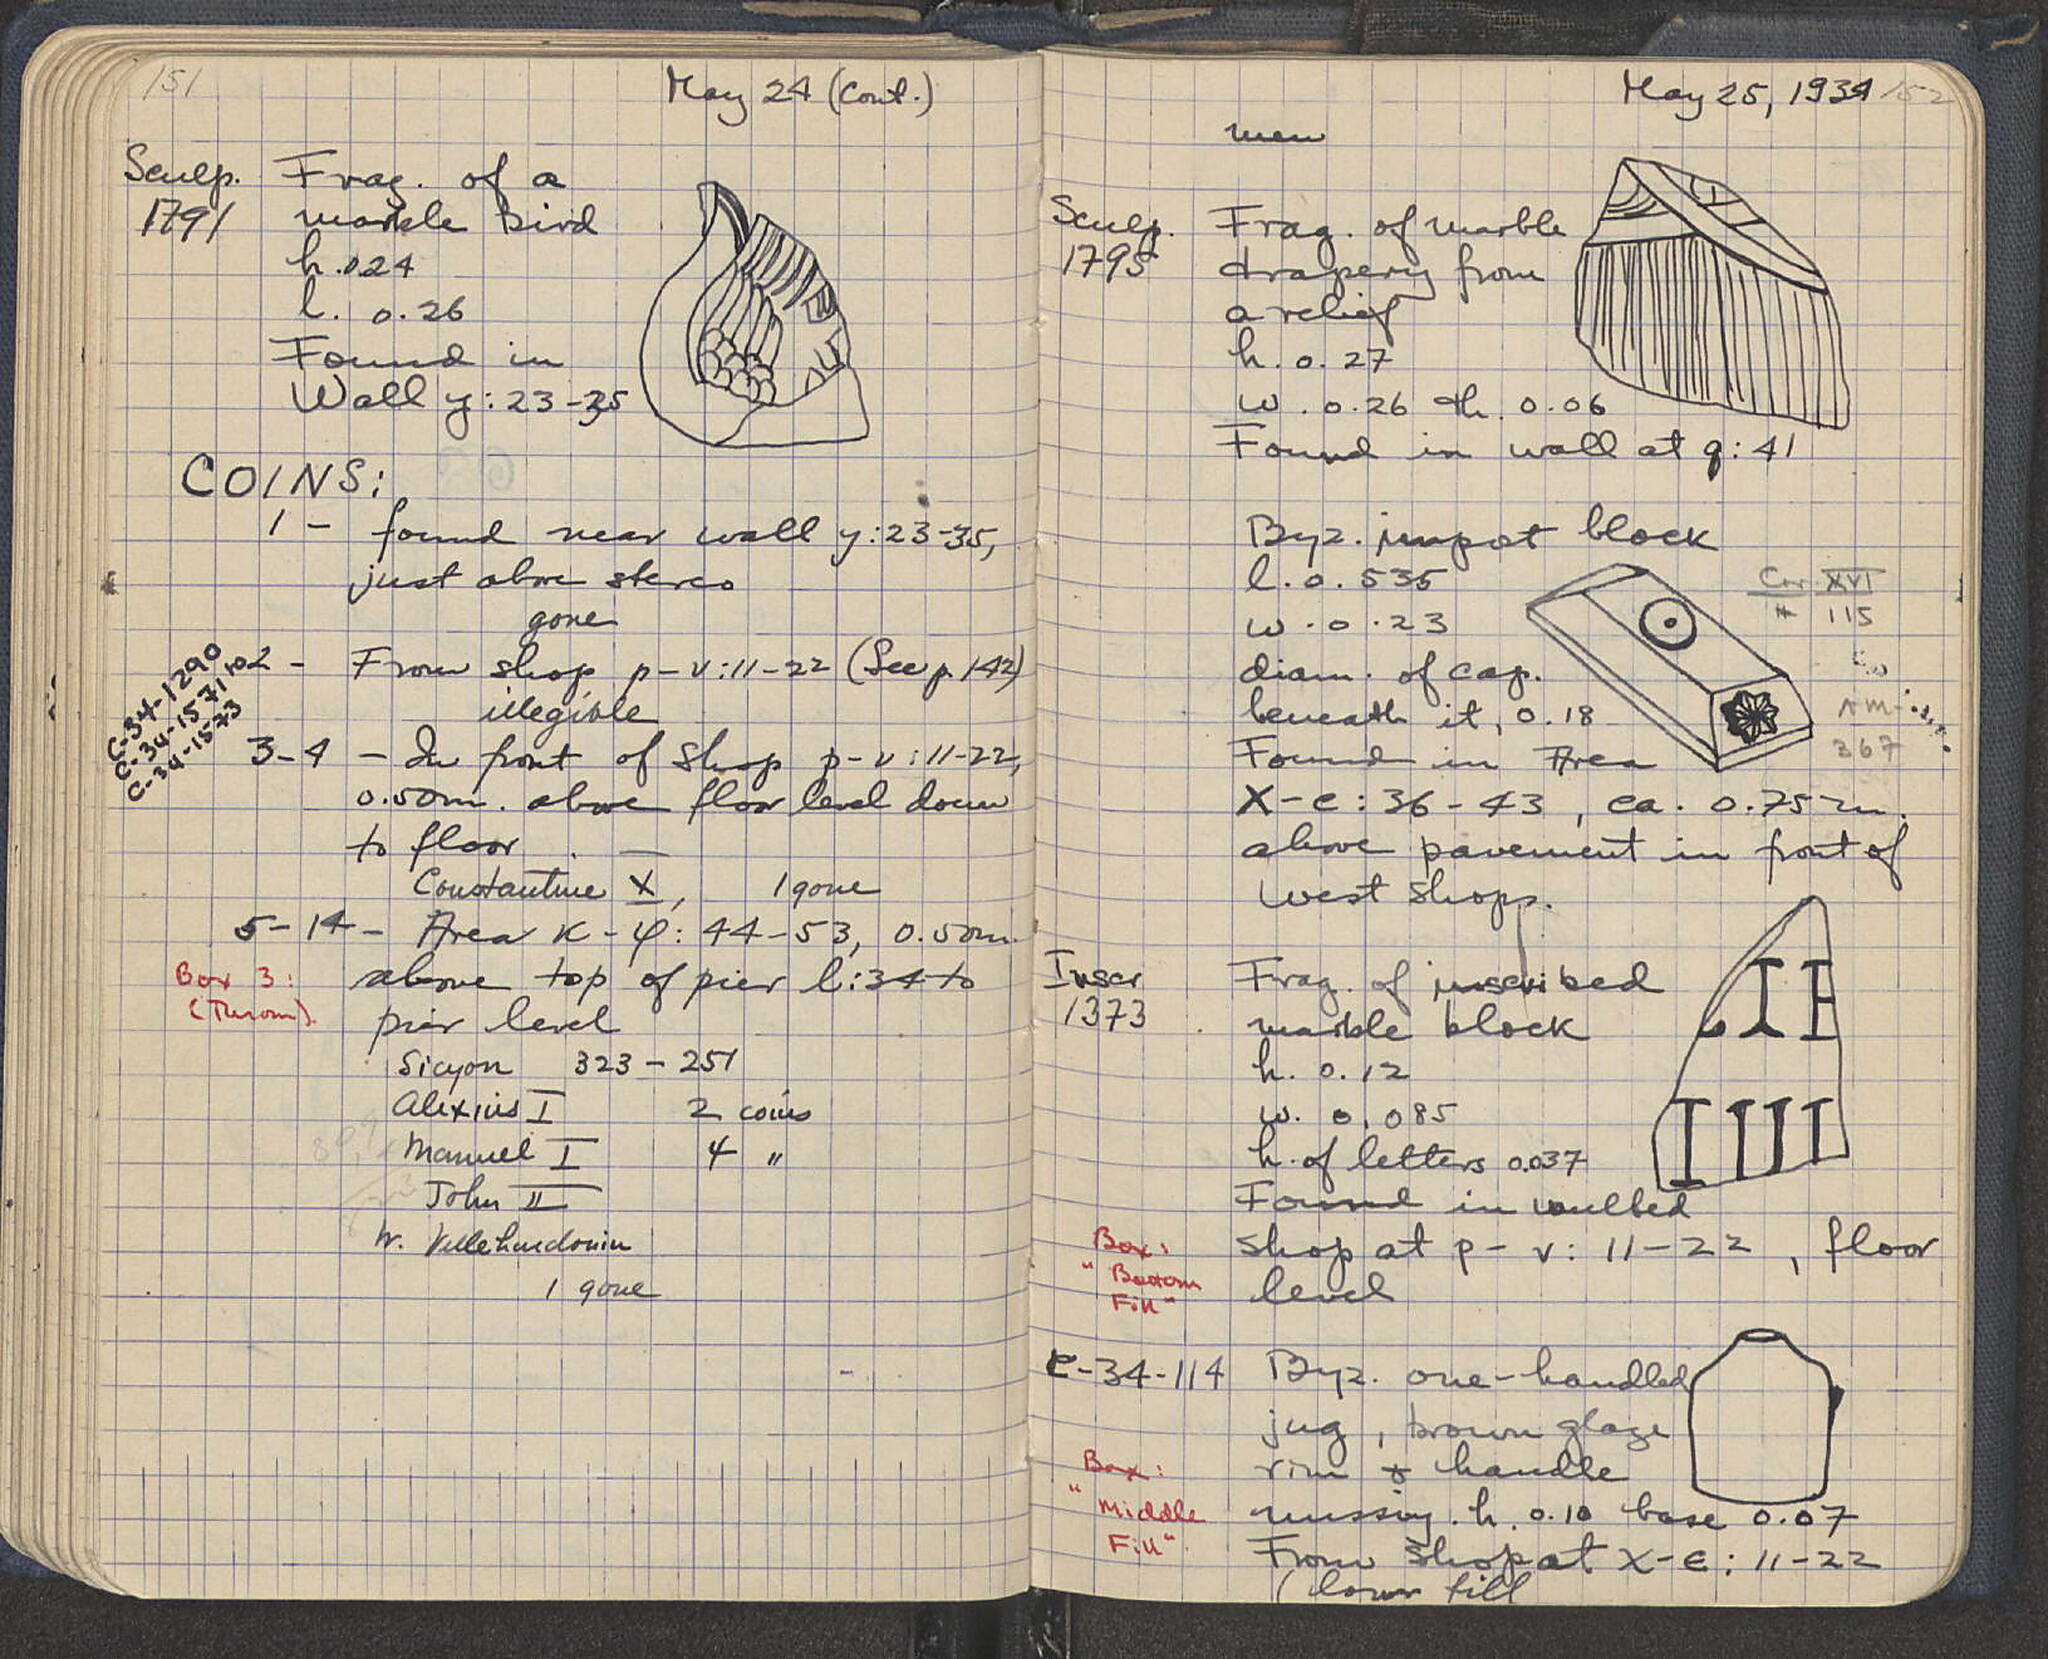 151
May 24 (Cont.)
Sculp.
1791
Frag. of a
marble bird
h. 024
l. 0.26
Found in
Wall y:23-35
COINS:
1 - found near wall y:23-35,
just above stereo
gone
C-34-1290
C-34-1571 to
C-34-1573
2 - From shop p-v:11-22 (See p. 142)
illegible
3-4 - In front of shop p-v:11-22,
0.50m. above floor level down
to floor
Constantine X, 1 gone
5-14 - Area K-φ: 44-53, 0.50m.
Box 3:
(Thrown).
above top of pier l:34 to
pier level
Sicyon 323-251
Alexius I 2 coins
Manuel I 4 "
John II
W. Villehardouin
1 gone
May 25, 1934 152
men
Sculp.
1795
Frag. of marble
drapery from
a relief
h. 0.27
w. 0.26 th. 0.06
Found in wall at q:41
Byz. impost block
l. 0.535
w. 0.23
diam. of cap.
beneath it, 0.18
Found in Area
X-E:36-43, ca. 0.75m.
above pavement in front of
west shops.
Cor. XVI
# 115
367
Inscr
1373
Frag. of inscribed
marble block
h. 0.12
w. 0.085
h. of letters 0.037
Found in vaulted
shop at p-v: 11-22, floor
level
Box:
"Bottom
Fill"
C-34-114
Byz. one-handled
jug, brown glaze
rim & handle
missing. h. 0.10 base 0.07
From shop at X-E: 11-22
(lower fill
Box:
"Middle
Fill".